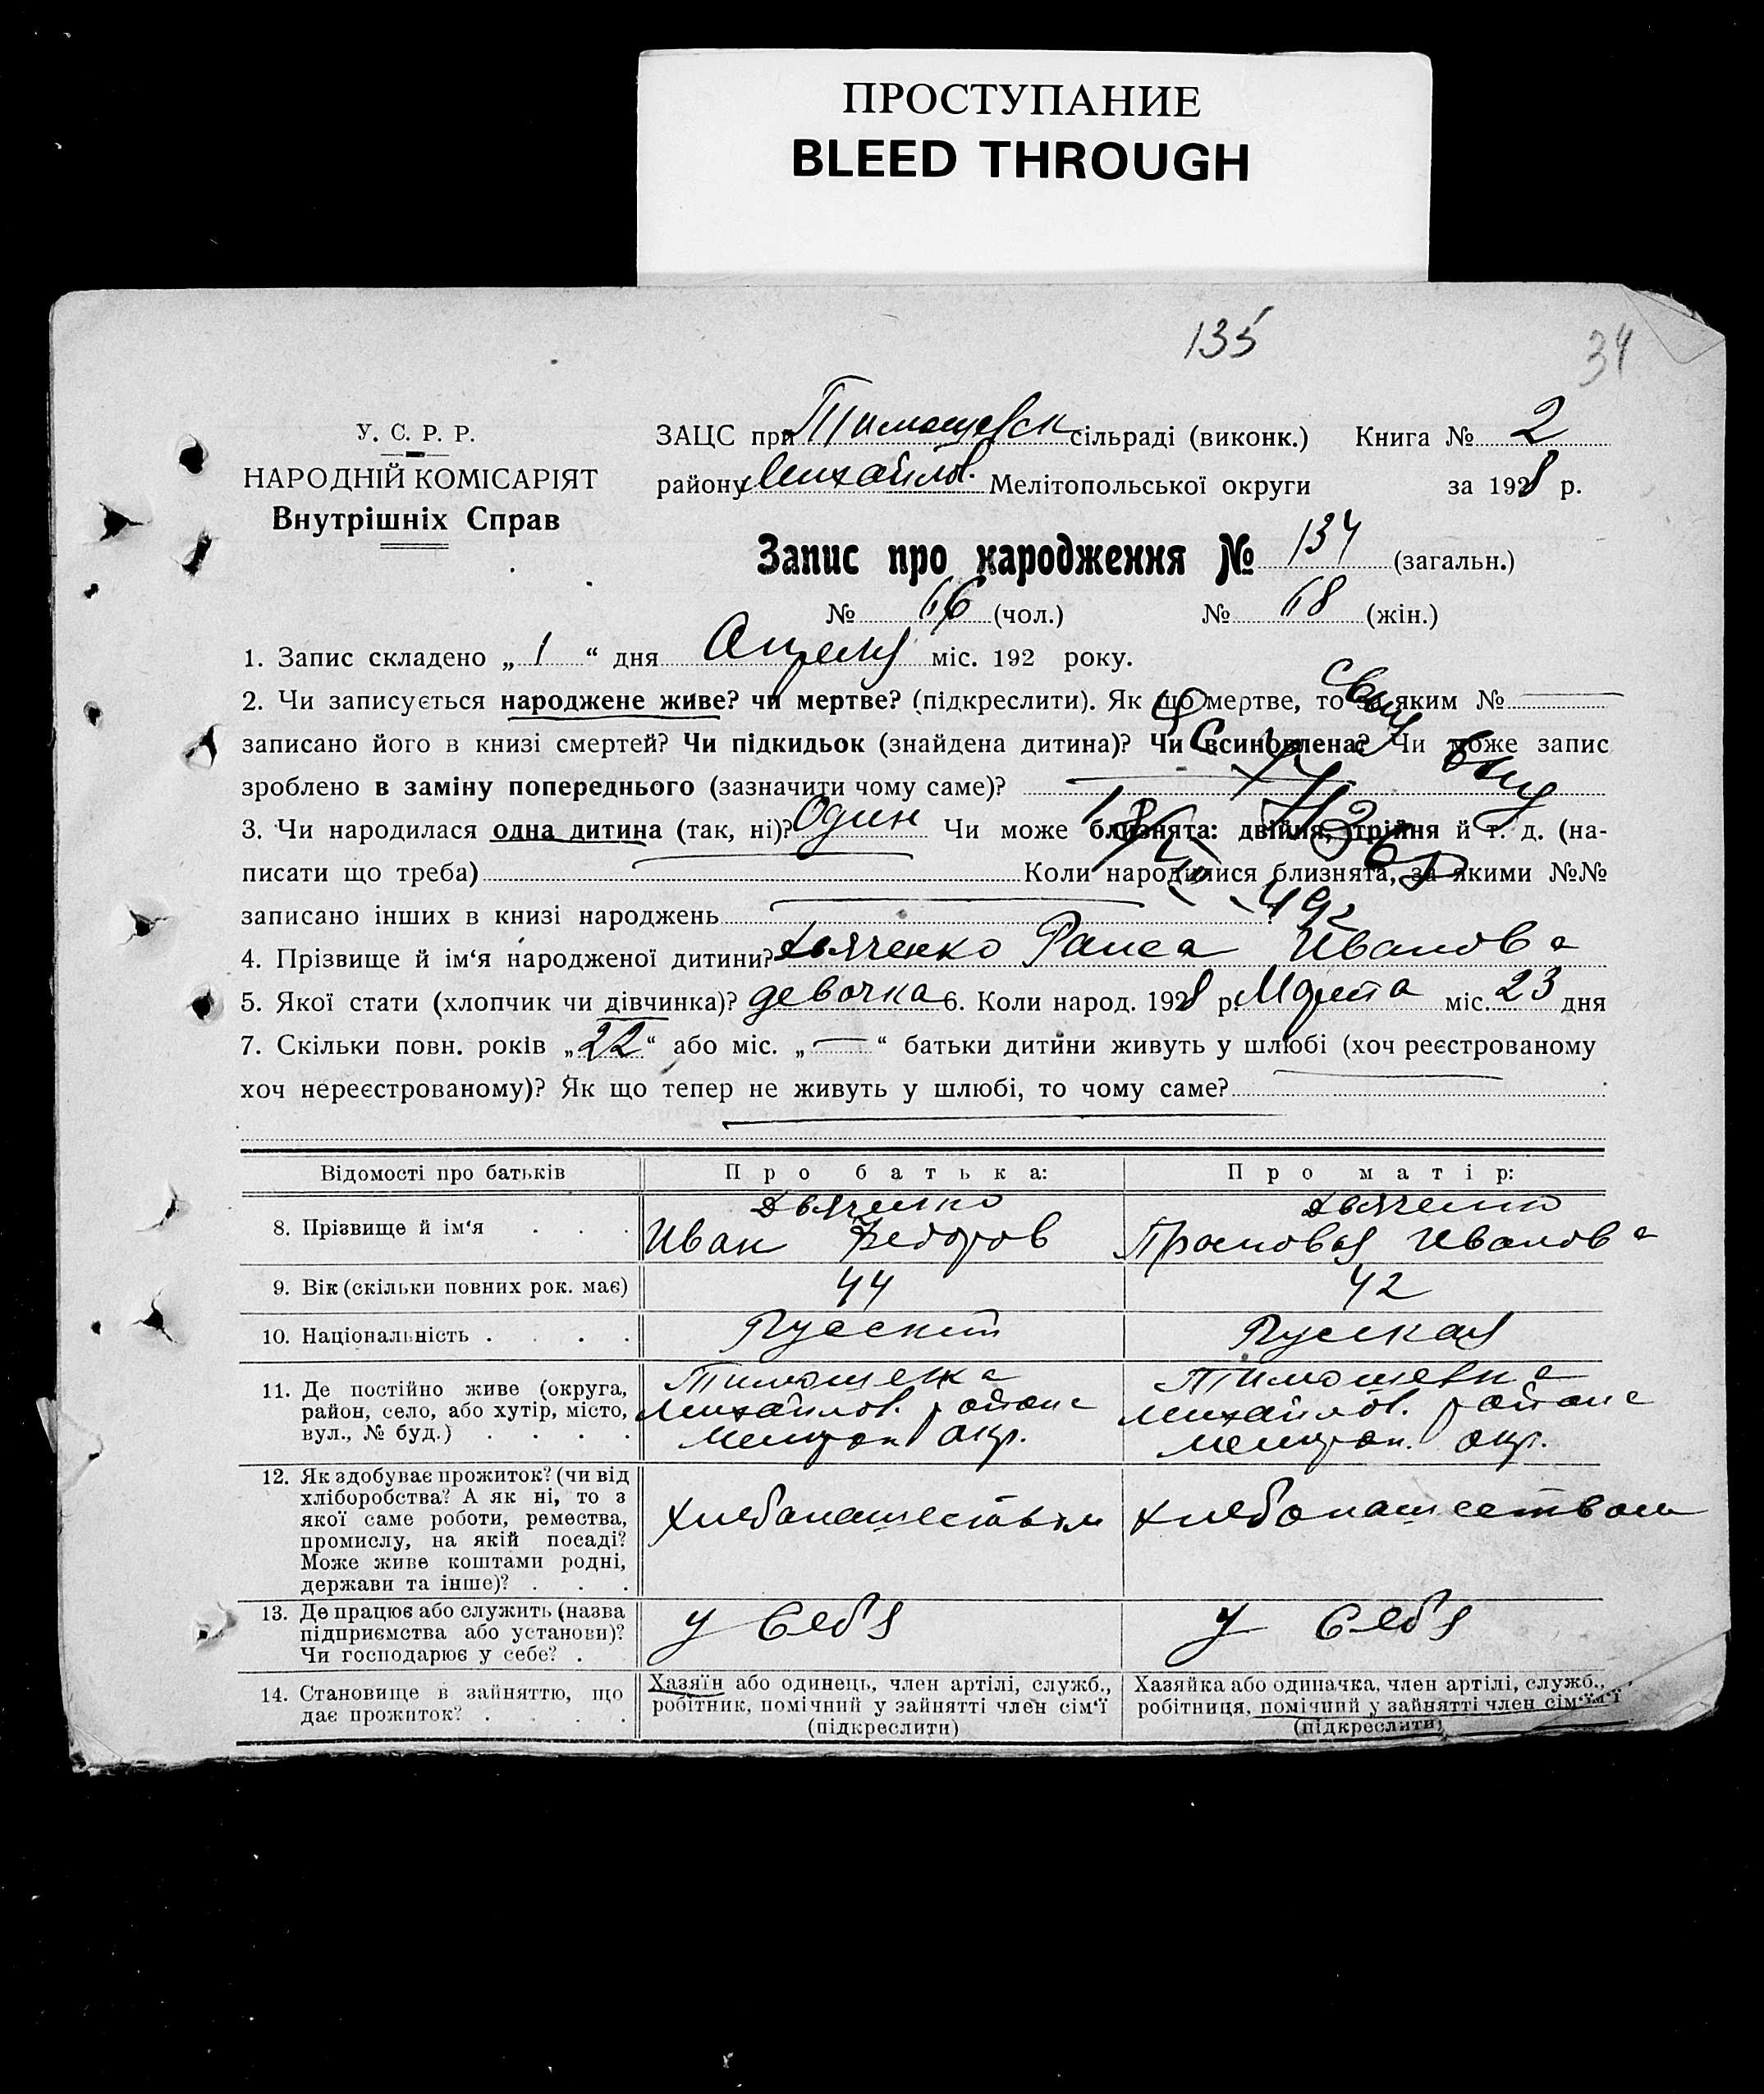 ПРОСТУПАНИЕ
BLEED THROUGH
135
34
У. С. Р. Р.
НАРОДНІЙ КОМІСАРІЯТ
Внутрішніх Справ
ЗАЦС при Тимошевск сільраді (виконк.) Книга № 2
району Михайлов. Мелітопольської округи за 1928 р.
Запис про народження № 134 (загальн.)
№ 66 (чол.) № 68 (жін.)
1. Запис складено „ 1 “ дня Апреля міс. 192 року.
2. Чи записується народжене живе? чи мертве? (підкреслити). Як що мертве, то за яким №
записано його в книзі смертей? Чи підкидьок (знайдена дитина)? Чи всиновлена? Чи може запис
зроблено в заміну попереднього (зазначити чому саме)?
3. Чи народилася одна дитина (так, ні)? Один Чи може близнята: двійня, трійня й т. д. (на-
писати що треба) Коли народилися близнята, за якими №№
записано інших в книзі народжень
4. Прізвище й ім‘я народженої дитини? Дьяченко Раиса Иванов а
5. Якої стати (хлопчик чи дівчинка)? девочка 6. Коли народ. 1928 р. Марта міс. 23 дня
7. Скільки повн. років „ 22 “ або міс. „ — “ батьки дитини живуть у шлюбі (хоч реєстрованому
хоч нереєстрованому)? Як що тепер не живуть у шлюбі, то чому саме?
Відомості про батьків Про батька: Про матір:
8. Прізвище й ім‘я Дьяченко Иван Федоров Дьяченко Прасковья Иванов а
9. Вік (скільки повних рок. має) 44 42
10. Національність Русский Русская
11. Де постійно живе (округа,
район, село, або хутір, місто,
вул., № буд.)
Тимошевка
Михайлов. района
Мелитоп окр.
Тимошевка
Михайлов. района
Мелитоп. окр.
12. Як здобуває прожиток? (чи від
хліборобства? А як ні, то з
якої саме роботи, ремества,
промислу, на якій посаді?
Може живе коштами родні,
держави та інше)?
Хлебопашеством Хлебопашеством
13. Де працює або служить (назва
підприємства або установи)?
Чи господарює у себе?
у себя у себя
14. Становище в зайняттю, що
дає прожиток?
Хазяїн або одинець, член артілі, служб.,
робітник, помічний у зайнятті член сім‘ї
(підкреслити)
Хазяйка або одиначка, член артілі, служб.,
робітниця, помічний у зайнятті член сім‘ї
(підкреслити)